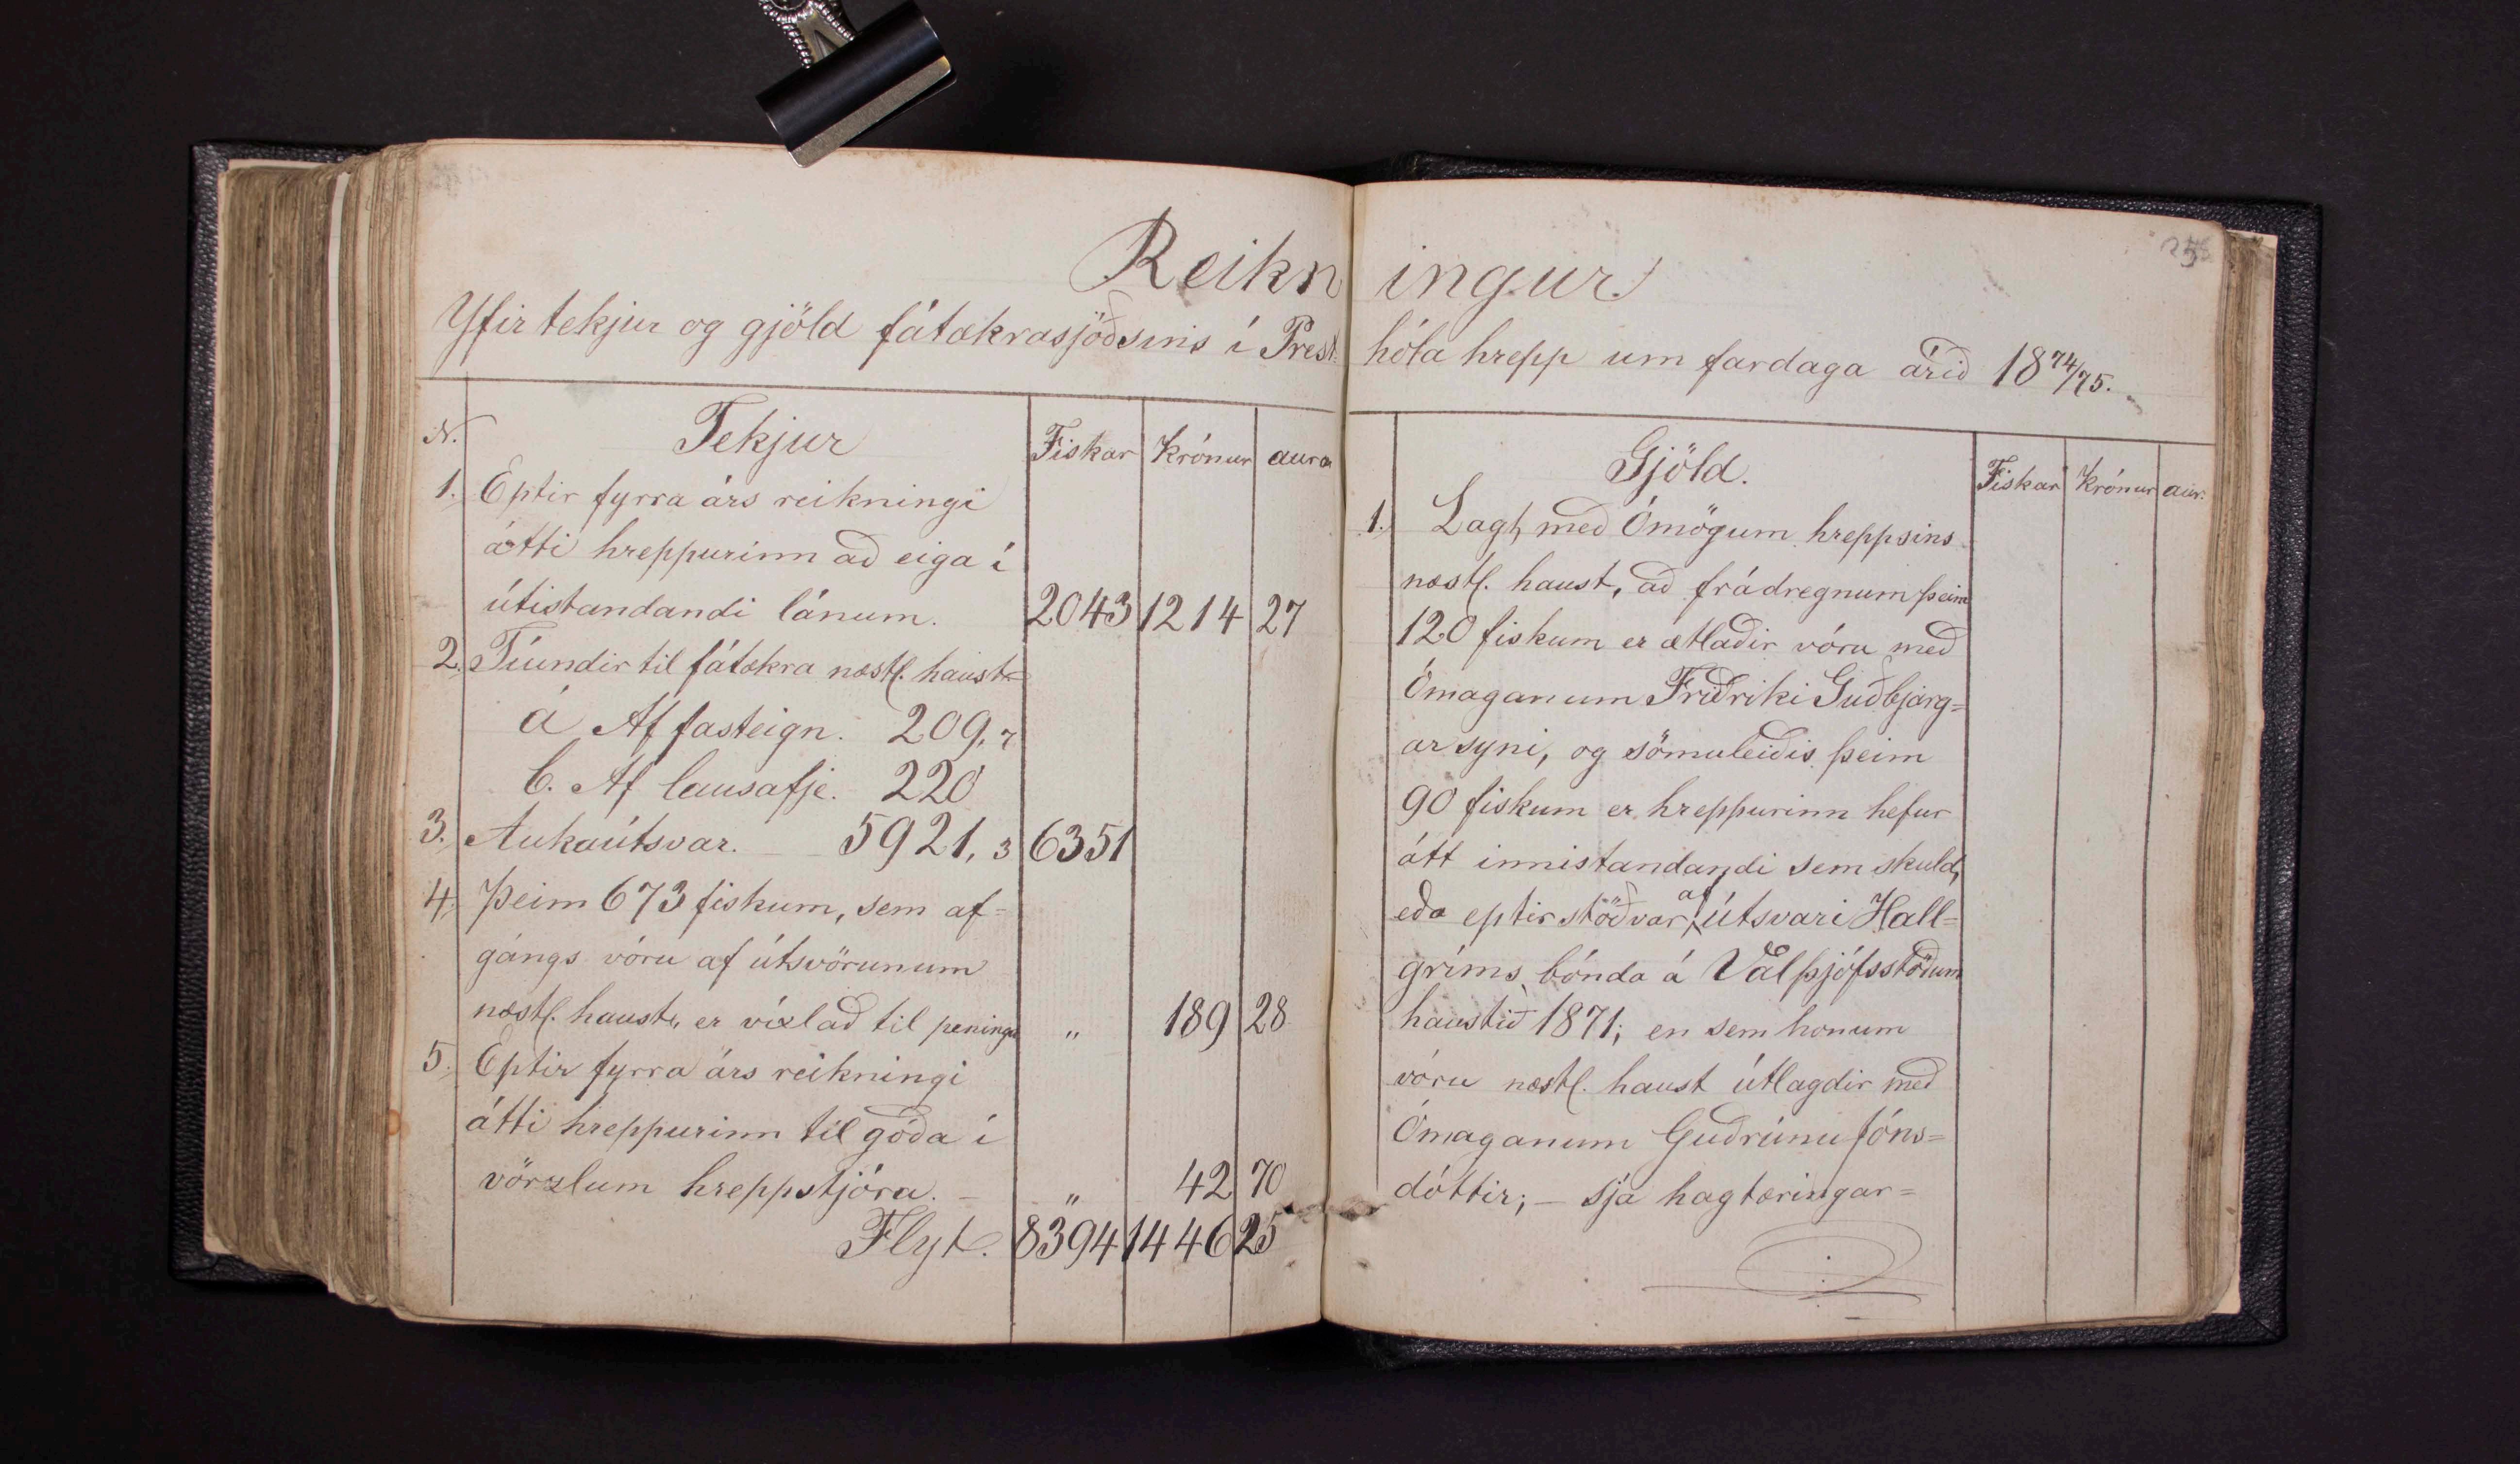 Reikningur
Yfir tekjur og gjöld fátækrasjóðsins í Presthóla hrepp um fardaga árið 18 74/75.
N. Tekjur Fiskar Krónur aura
1. Eptir fyrra árs reikningi
átti hreppurinn að eiga í
útistandandi lánum. 2043 1214 27
2. Tíundir til fátækra næstl. haust=
a Af fasteign. 209, 7
b. Af lausafje. 220
3. Aukaútsvar. 5921, 3 6351
4. Þeim 673 fiskum, sem af=
gángs vóru af útsvörunum
næstl. haust, er víxlað til peninga „ 189 28
5. Eptir fyrra árs reikningi
átti hreppurinn til góða í
vörzlum hreppstjóra. „ 42 70
Flyt. 8394 1446 25
Gjöld. Fiskar Krónur aur.
1. Lagt með Ómögum hreppsins
næstl. haust, að frádregnum þeim
120 fiskum er ætlaðir vóru með
Ómaganum Friðriki Guðbjarg=
arsyni, og sömuleiðis þeim
90 fiskum er hreppurinn hefur
átt innistandandi sem skuld,
eða eptirstöðvar af útsvari Hall=
gríms bónda á Valþjófsstöðum
haustið 1871; en sem honum
vóru næstl. haust útlagðir með
Ómaganum Guðrúnu Jóns=
dóttir; – sjá hagtæringar=